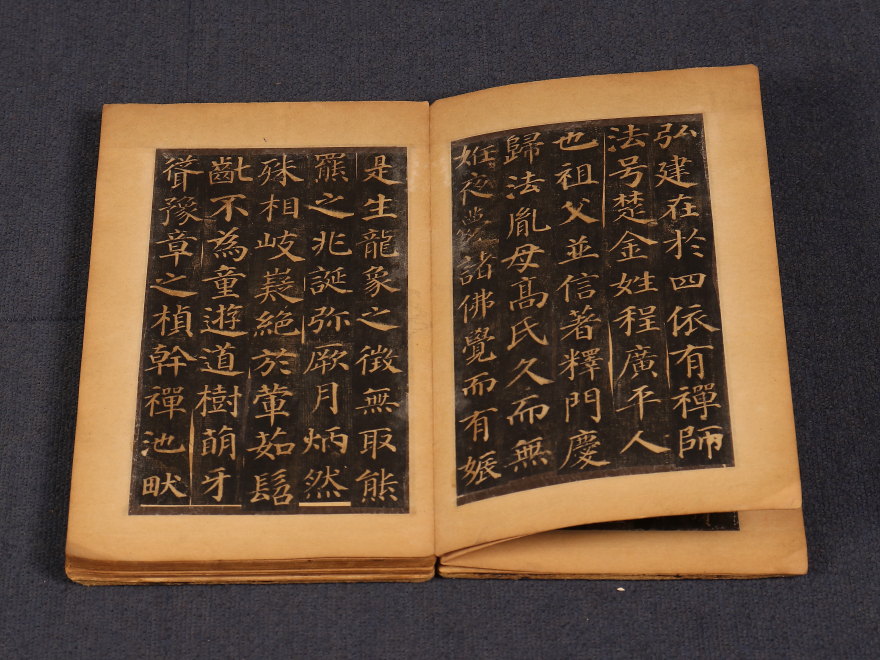 弘建在於四依有禪師
法号楚金姓程廣平人
也祖父並信著釋門慶
歸法胤母髙氏久而無
姙夜夢諸佛覺而有娠
是生龍象之徵無取熊
羆之兆誕弥厥月炳然
殊相岐嶷絶於葷茹髫
齔不為童遊道樹萌牙
聳豫章之楨幹禪池畎